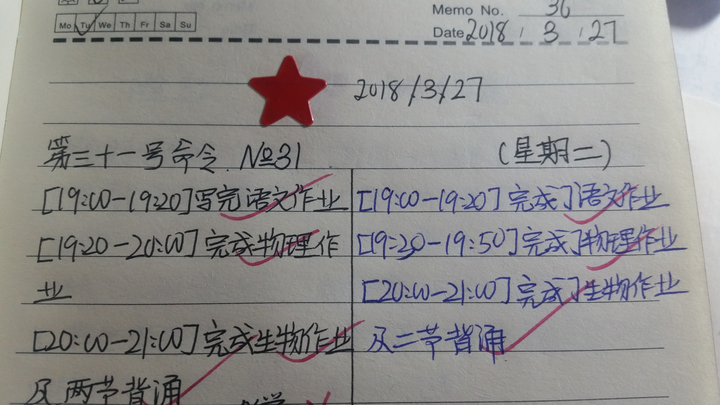 Memo No. 36
Mo Tu We Th Fr Sa Su
Date 2018 / 3 / 27
2018/3/27
第三十一号命令 №31 (星期二)
[19:00-19:20]写完语文作业
[19:20-20:00]完成物理作
业
[20:00-21:00]完成生物作业
及两节背诵
[19:00-19:20]完成了语文作业
[19:20-19:50]完成了物理作业
[20:00-21:00]完成了生物作业
及二节背诵